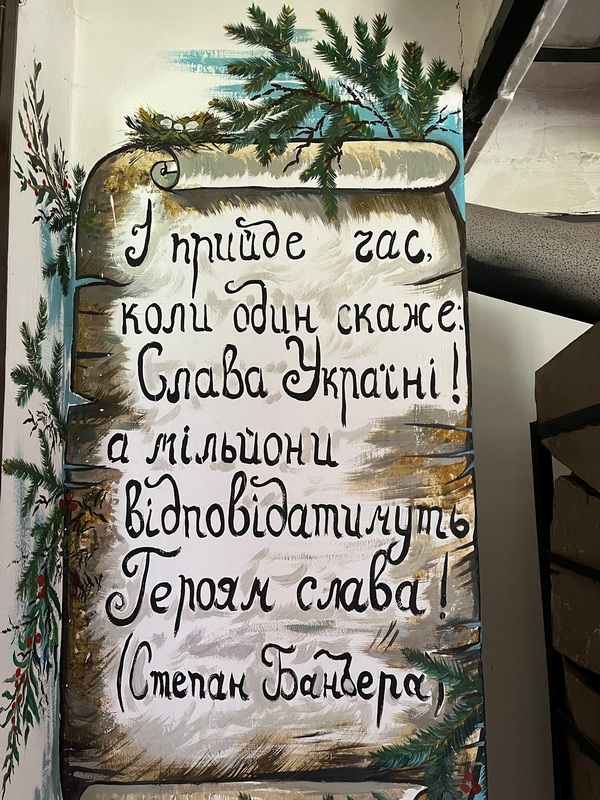 І прийде час,
коли один скаже:
Слава Україні!
а мільйони
відповідатимуть
Героям слава!
(Степан Бандера)